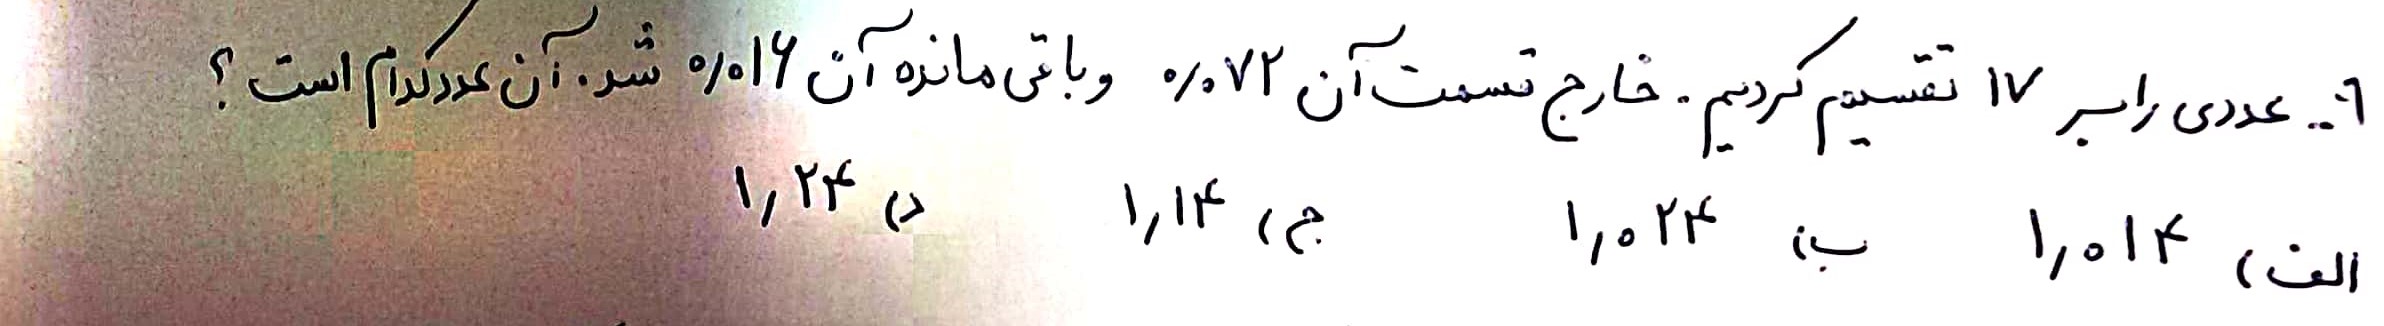 ۶- عددی را بر ۱۷ تقسیم کردیم. خارج قسمت آن ۰/۰۷۲ و باقی مانده آن ۰/۰۱۶ شد. آن عدد کدام است؟
الف) ۱/۰۱۴ ب) ۱/۰۲۴ ج) ۱/۱۴ د) ۱/۲۴